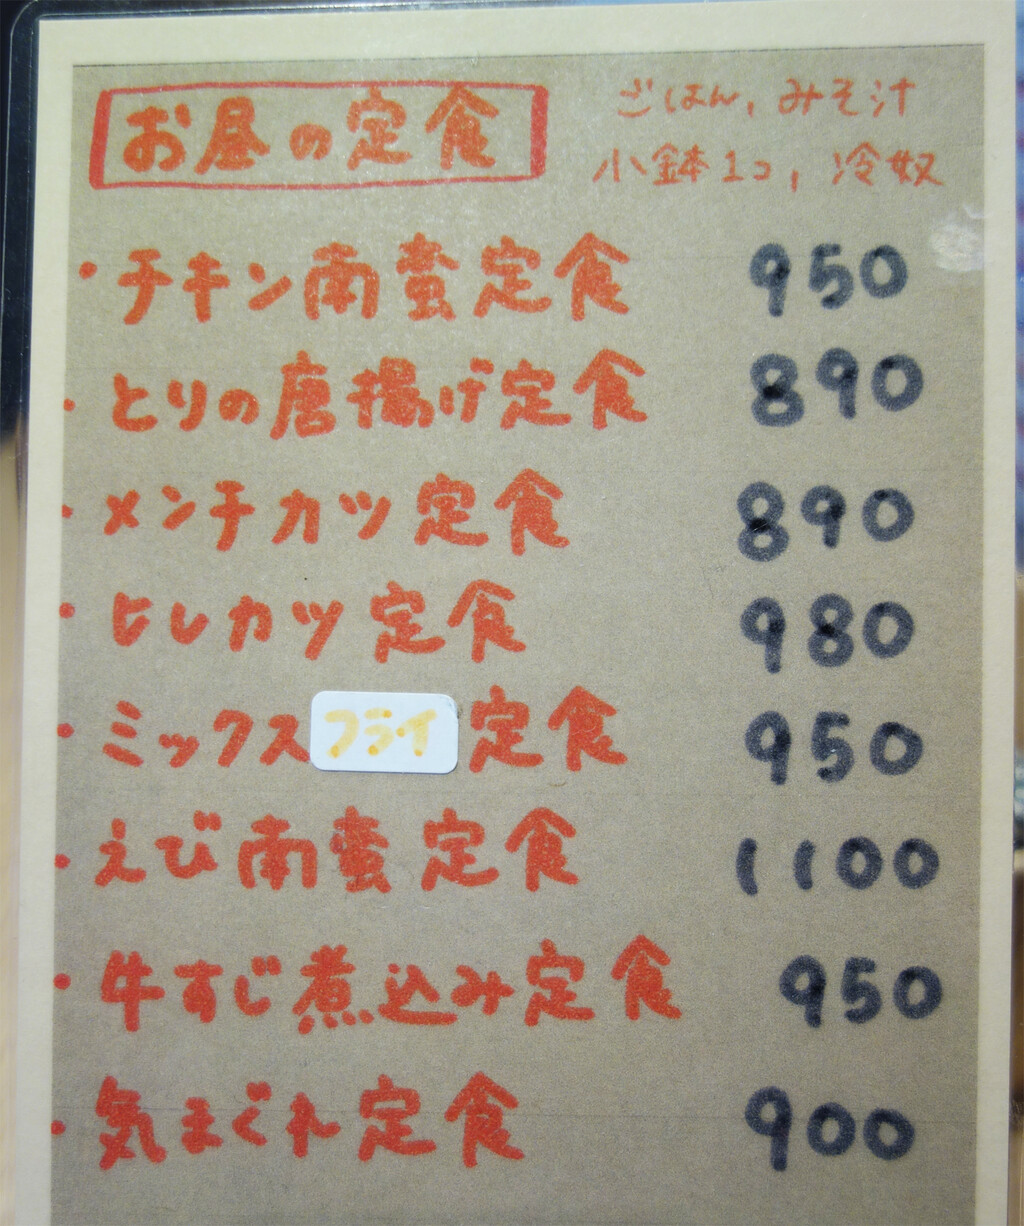 お昼の定食
ごはん, みそ汁
小鉢1コ, 冷奴
・チキン南蛮定食 950
・とりの唐揚げ定食 890
・メンチカツ定食 890
・ヒレカツ定食 980
・ミックスフライ定食 950
・えび南蛮定食 1100
・牛すじ煮込み定食 950
・気まぐれ定食 900